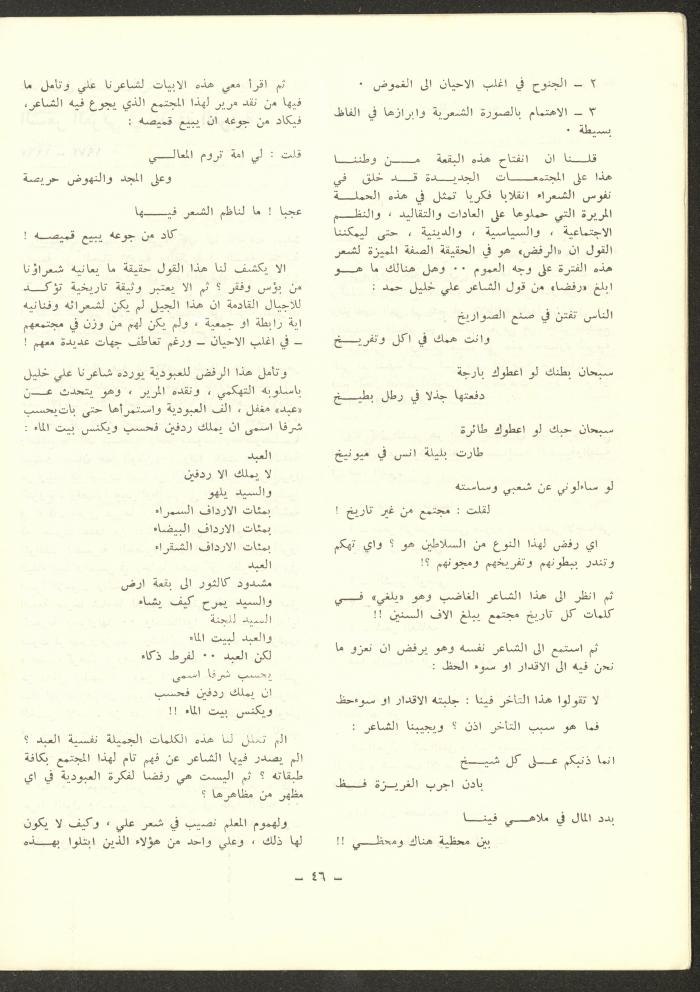 ٢ – الجنوح في اغلب الاحيان الى الغموض ٠
٣ – الاهتمام بالصورة الشعرية وابرازها في الفاظ
بسيطة ٠
قلنا ان انفتاح هذه البقعة من وطننا
هذا على المجتمعات الجديدة قد خلق في
نفوس الشعراء انقلابا فكريا تمثل في هذه الحملة
المريرة التي حملوها على العادات والتقاليد ، والنظم
الاجتماعية ، والسياسية ، والدينية ، حتى ليمكننا
القول ان «الرفض» هو في الحقيقة الصفة المميزة لشعر
هذه الفترة على وجه العموم ٠٠ وهل هنالك ما هو
ابلغ «رفضا» من قول الشاعر علي خليل حمد :
الناس تفتن في صنع الصواريخ
وانت همك في اكل وتفريخ
سبحان بطنك لو اعطوك بارجة
دفعتها جذلا في رطل بطيخ
سبحان حبك لو اعطوك طائرة
طارت بليلة انس في ميونيخ
لو ساءلوني عن شعبي وساسته
لقلت : مجتمع من غير تاريخ !
اي رفض لهذا النوع من السلاطين هو ؟ واي تهكم
وتندر ببطونهم وتفريخهم ومجونهم ؟!
ثم انظر الى هذا الشاعر الغاضب وهو «يلغي» في
كلمات كل تاريخ مجتمع يبلغ الاف السنين !!
ثم استمع الى الشاعر نفسه وهو يرفض ان نعزو ما
نحن فيه الى الاقدار او سوء الحظ :
لا تقولوا هذا التأخر فينا : جلبته الاقدار او سوءحظ
فما هو سبب التأخر اذن ؟ ويجيبنا الشاعر :
انما ذنبكم على كل شيخ
بادن اجرب الغريزة فظ
بدد المال في ملاهي فينا
بين محظية هناك ومحظي !!
ثم اقرأ معي هذه الابيات لشاعرنا علي وتأمل ما
فيها من نقد مرير لهذا المجتمع الذي يجوع فيه الشاعر،
فيكاد من جوعه ان يبيع قميصه :
قلت : لي امة تروم المعالي
وعلى المجد والنهوض حريصة
عجبا ! ما لناظم الشعر فيها
كاد من جوعه يبيع قميصه !
الا يكشف لنا هذا القول حقيقة ما يعانيه شعراؤنا
من بؤس وفقر ؟ ثم الا يعتبر وثيقة تاريخية تؤكد
للاجيال القادمة ان هذا الجيل لم يكن لشعرائه وفنانيه
اية رابطة او جمعية ، ولم يكن لهم من وزن في مجتمعهم
– في اغلب الاحيان – ورغم تعاطف جهات عديدة معهم !
وتأمل هذا الرفض للعبودية يورده شاعرنا علي خليل
باسلوبه التهكمي ، ونقده المرير ، وهو يتحدث عن
«عبد» مغفل ، الف العبودية واستمرأها حتى باتيحسب
شرفا اسمى ان يملك ردفين فحسب ويكنس بيت الماء :
العبد
لا يملك الا ردفين
والسيد يلهو
بمئات الارداف السمراء
بمئات الارداف البيضاء
بمئات الارداف الشقراء
العبد
مشدود كالثور الى بقعة ارض
والسيد يمرح كيف يشاء
السيد للجنة
والعبد لبيت الماء
لكن العبد ٠٠ لفرط ذكاء
يحسب شرفا اسمى
ان يملك ردفين فحسب
ويكنس بيت الماء !!
الم تحلل لنا هذه الكلمات الجميلة نفسية العبد ؟
الم يصدر فيها الشاعر عن فهم تام لهذا المجتمع بكافة
طبقاته ؟ ثم اليست هي رفضا لفكرة العبودية في اي
مظهر من مظاهرها ؟
ولهموم المعلم نصيب في شعر علي ، وكيف لا يكون
لها ذلك ، وعلي واحد من هؤلاء الذين ابتلوا بهذه
– ٤٦ –